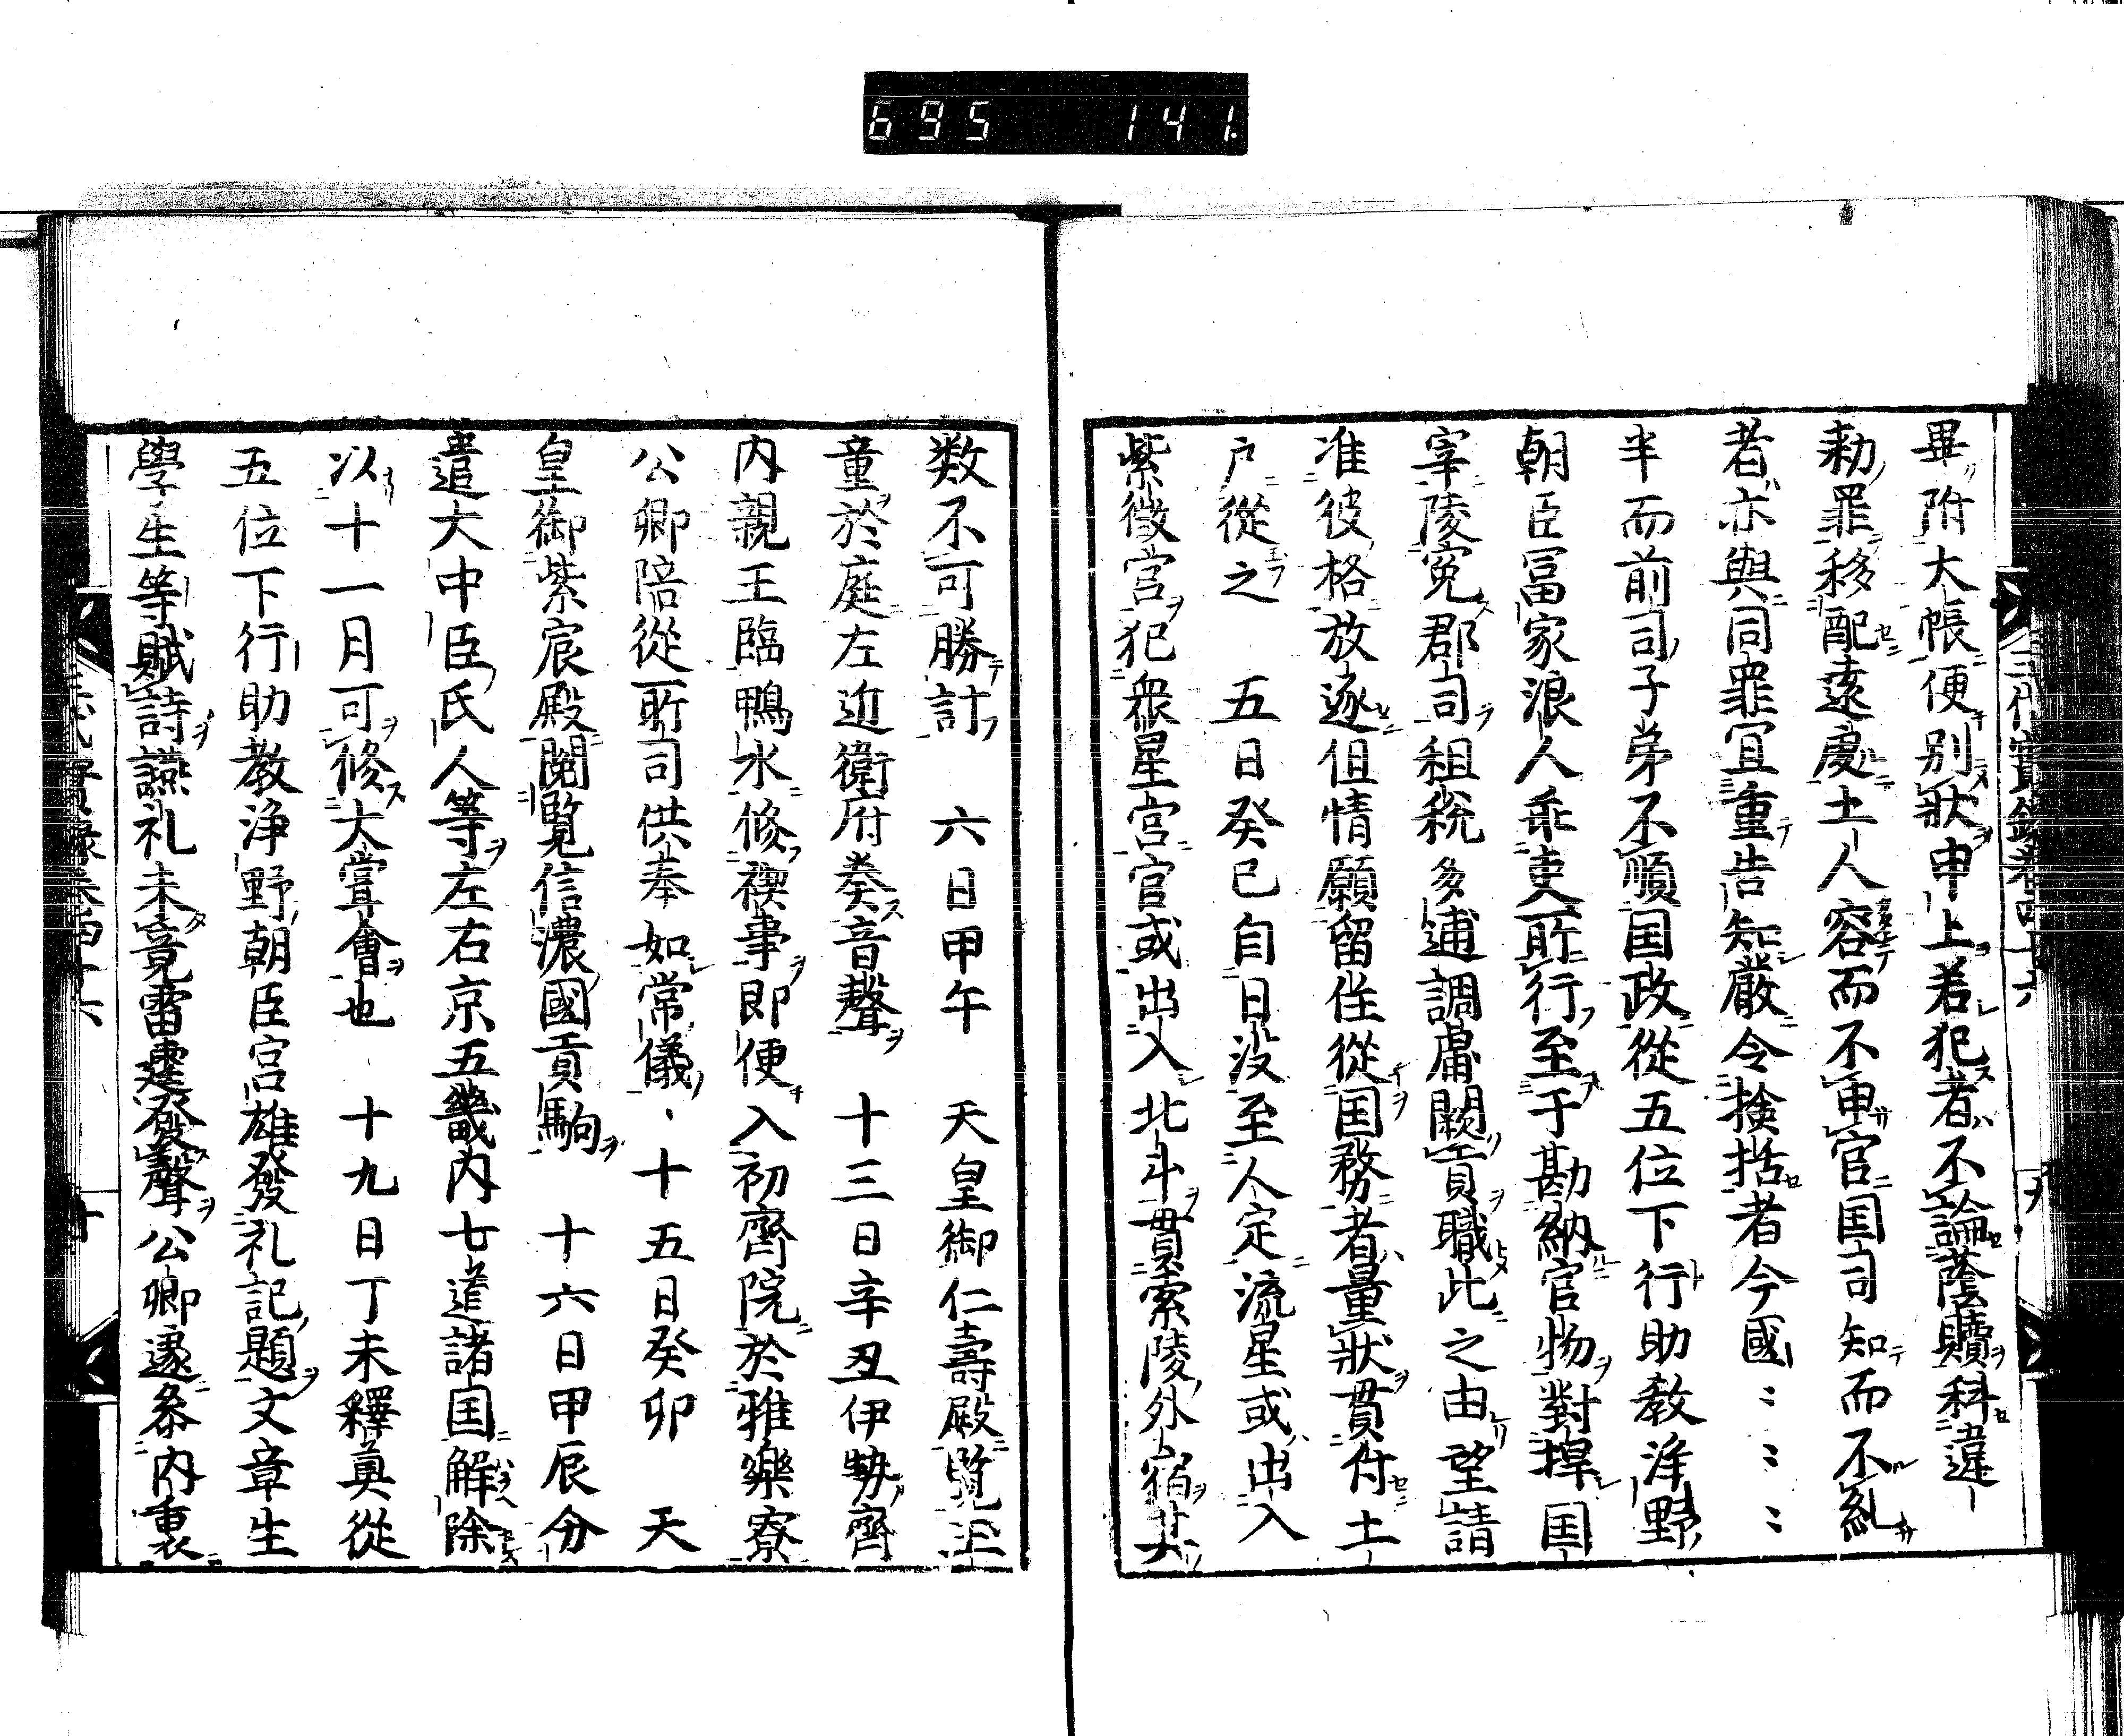 695 141.
畢附大帳便別狀申上若犯者不論蔭贖科違
勅罪移配遠處土人容而不申官国司知而不糺
者亦與同罪宜重告知嚴令撿括者今國〻〻〻
半而前司子弟不順国政從五位下行助教浄野
朝臣冨家浪人乖吏所行至于勘納官物對捍国
宰陵寃郡司租税多逋調庸闕貢職此之由望請
准彼格放逐但情願留住從国務者量狀貫付土
戶從之 五日癸巳自日没至人定流星或出入
紫微宫犯衆星宫官或出入北斗貫索陵外宿其
三代實録卷四十六 九
数不可勝計 六日甲午 天皇御仁壽殿覧
童於庭左近衛府奏音聲 十三日辛丑伊勢齊
内親王臨鴨水修禊事即便入初齊院於雅樂寮
公卿陪從所司供奉如常儀、十五日癸卯 天
皇御紫宸殿閲覧信濃國貢駒 十六日甲辰分
遣大中臣氏人等左右京五畿内七道諸国解除
以十一月可修大甞會也 十九日丁未釋奠從
五位下行助教浄野朝臣宫雄發礼記題文章生
學生等賦詩讌礼未竟雷霆發聲公卿遽参内裏
三代實録卷四十六 十